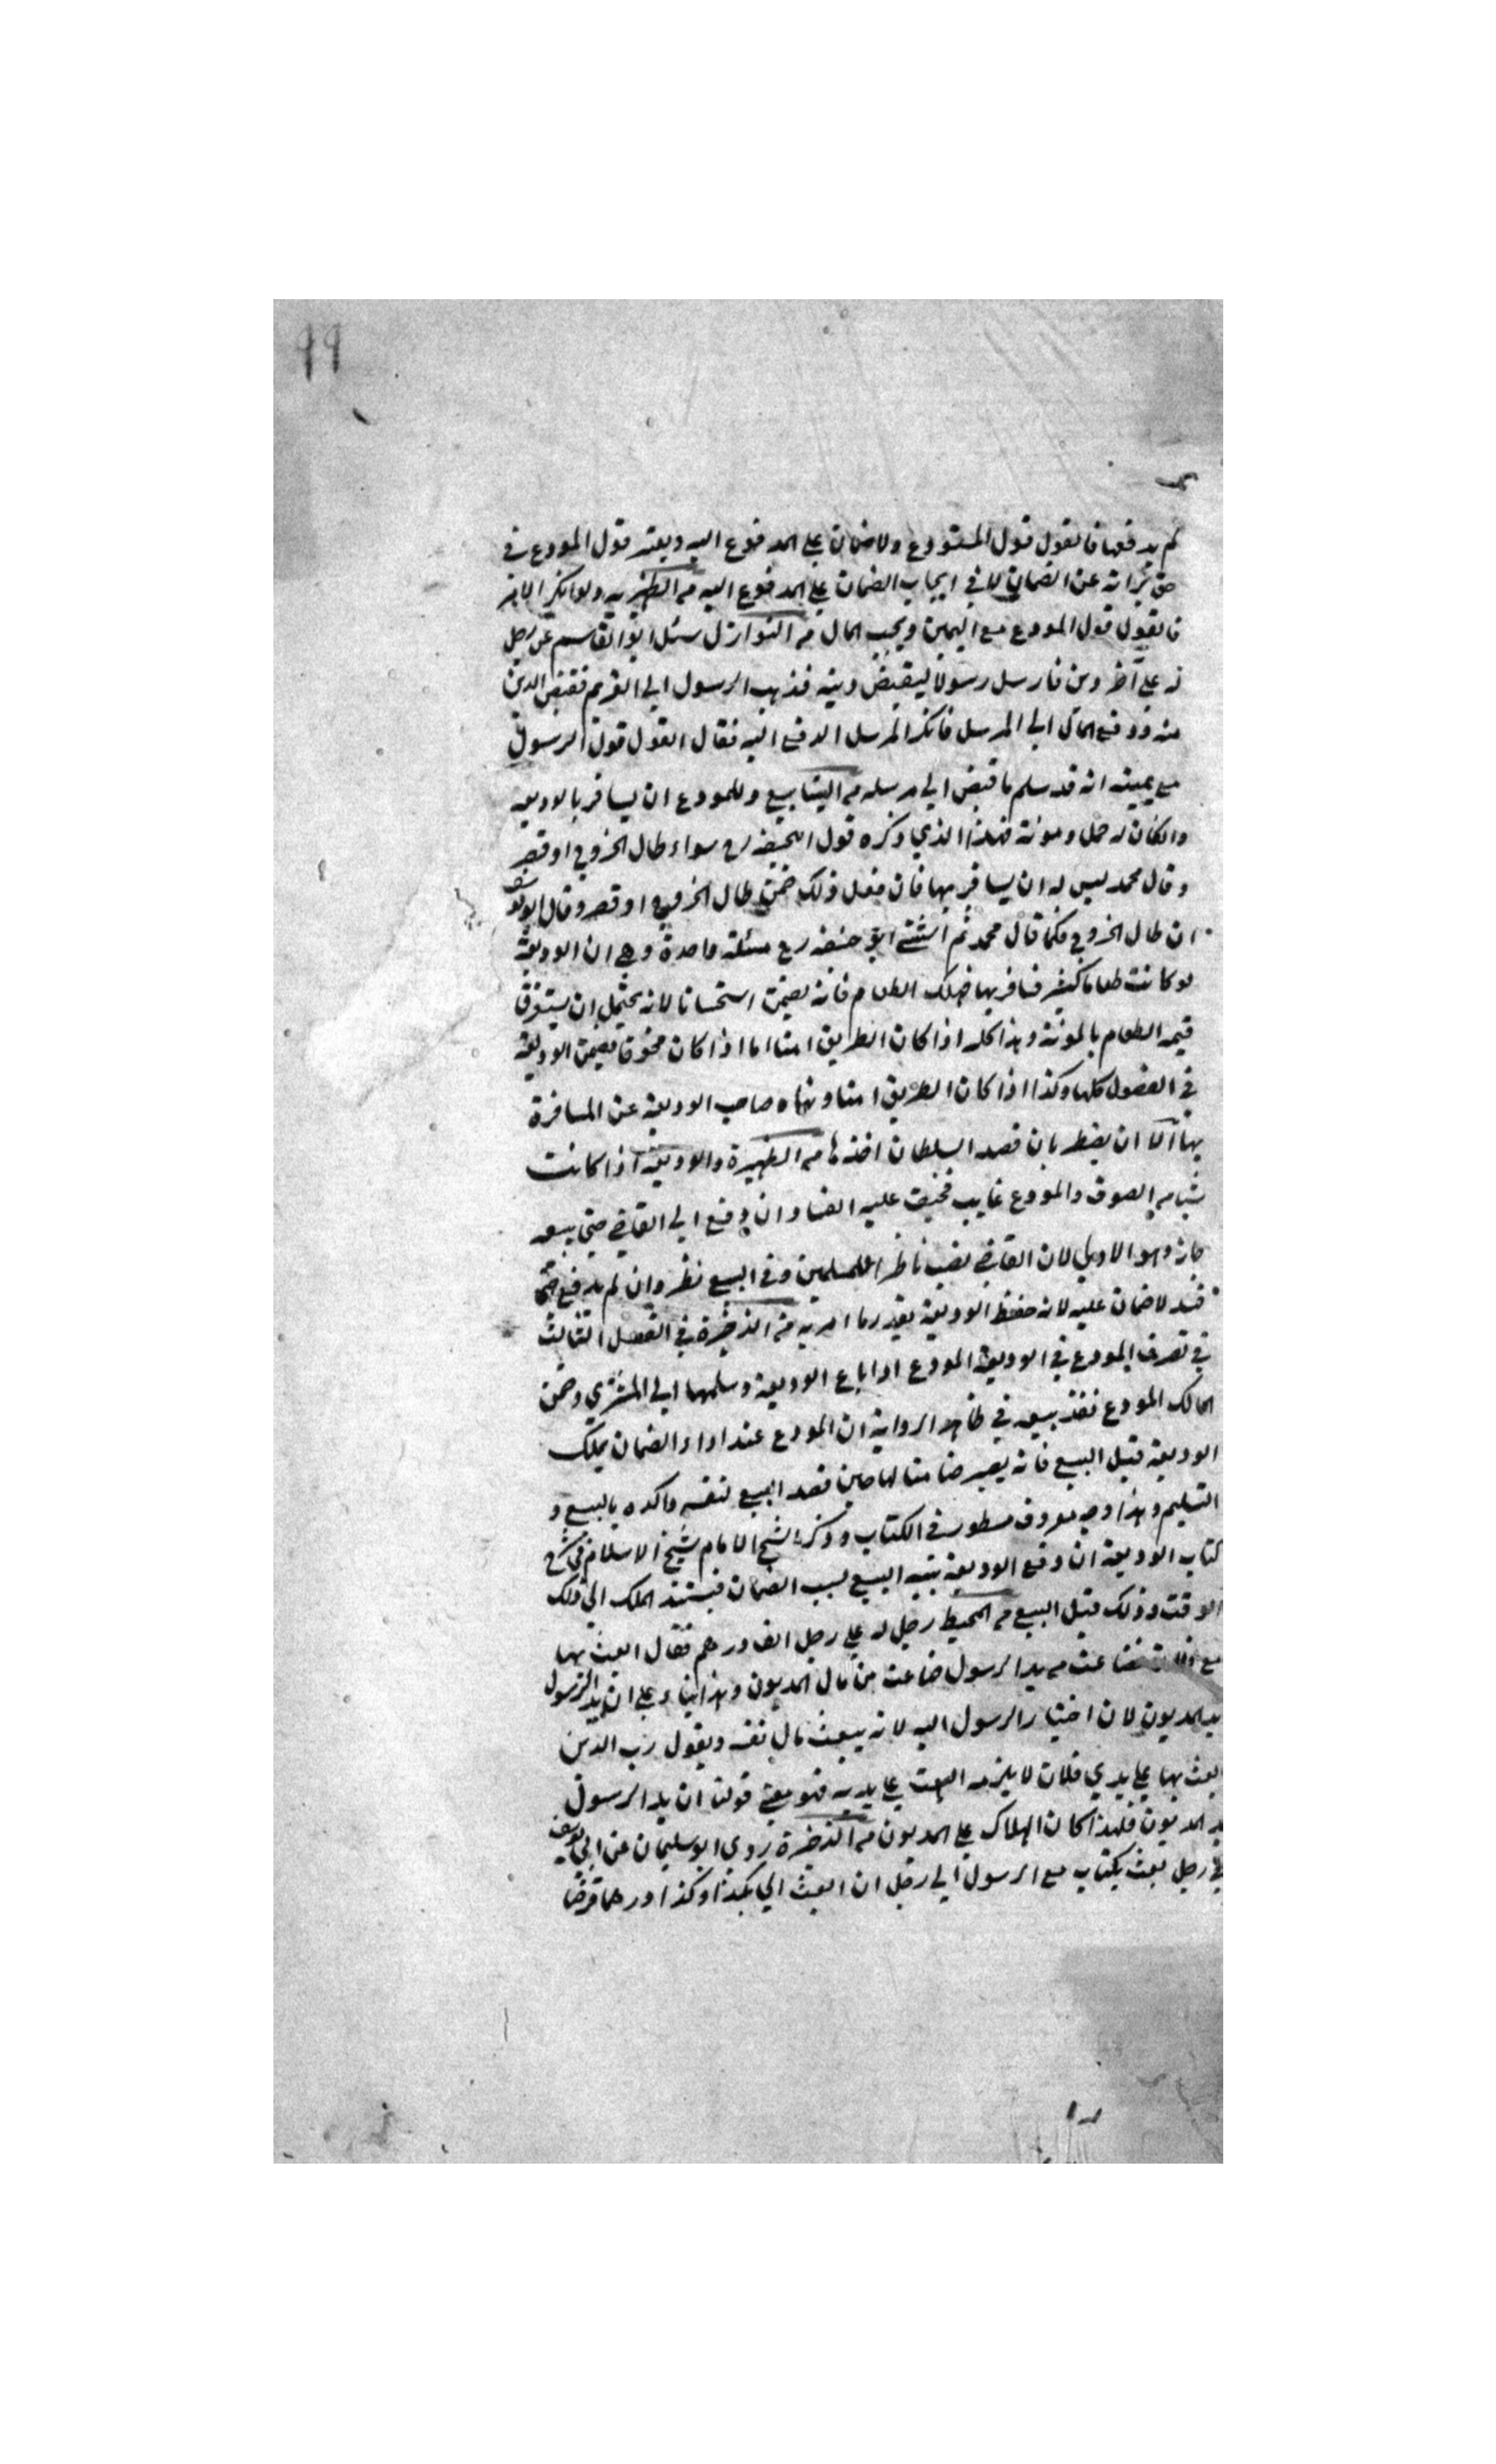 ٩٩
لم يدفعها فالقول قول المستودع ولا ضمان على المدفوع اليه ويعتبر قول المودع في
حق براته عن الضمان لا في ايجاب الضمان على المدفوع اليه من الظهيرية ولو انكر الامر
فالقول قول المودع مع اليمين ويجب المال من النوازل سئل ابو القاسم عن رجل
له على آخر دين فارسل رسولا ليقبض دينه فذهب الرسول الى الغريم فقبض الدين
منه ودفع المال الى المرسل فانكر المرسل الدفع اليه فقال القول قول الرسول
مع يمينه انه قد سلم ما قبض الى مرسله من الينابيع وللمودع ان يسافر بالوديعة
وان كان له حمل ومونة فهذا الذي ذكره قول ابيحنيفه رح سواء طال الخروج او قصر
وقال محمد ليس له ان يسافر بها فان فعل ذلك ضمن طال الخروج او قصر وقال ابو يوسف
ان طال الخروج فكما قال محمد ثم استثنى ابو حنيفه رح مسئلة واحدة وهي ان الوديعة
لو كانت طعاما كثيرا فسافر بها فهلك الطعام فانه يضمن استحسانا لانه يحتمل ان يستغرق
قيمة الطعام بالمونة وهذا كله اذا كان الطريق امنا اما اذا كان مخوفا يضمن الوديعة
في الفصول كلها وكذا اذا كان الطريق امنا ونهاه صاحب الوديعة عن المسافرة
بها الا ان يضطر بان قصد السلطان اخذها من الظهيرة والوديعة اذا كانت
شيا من الصوف والمودع غايب فخيف عليه الفساد ان دفع الى القاضي حتى يبيعه
جاز وهو الاولى لان القاضي نصب ناظرا للمسلمين وفي البيع نظر وان لم يدفع حتى
فسد لا ضمان عليه لانه حفظ الوديعة بقدر ما امر به من الذخيرة في الفصل الثالث
في تصرف المودع في الوديعة المودع اذا باع الوديعة وسلمها الى المشتري وضمن
المالك المودع نفذ بيعه في ظاهر الرواية ان المودع عند اداء الضمان يملك
الوديعة قبل البيع فانه يصير ضامنا لها حين قصد البيع لنفسه واكده بالبيع و
التسليم وهذا وجه معروف مسطور في الكتاب وذكر الشيخ الامام شيخ الاسلام في شرح
كتاب الوديعة ان دفع الوديعة بنية البيع لسبب الضمان فيستند الملك الى ذلك
الوقت وذلك قبل البيع من المحيط رجل له على رجل الف درهم فقال ابعث بها
مع فلان فضاعت من يد الرسول ضاعت من مال المديون وهذا بناء على ان يد الرسول
يد المديون لان اختيار الرسول اليه لانه يبعث مال نفسه ويقول رب الدين
ابعث بها على يدي فلان لا يلزمه البعث على يديه فهو معنى قولنا ان يد الرسول
يد المديون فلهذا كان الهلاك على المديون من الذخيرة روى ابو سليمان عن ابي يوسف
في رجل بعث بكتاب مع الرسول الى رجل ان ابعث الي بكذا وكذا درهما قرضا